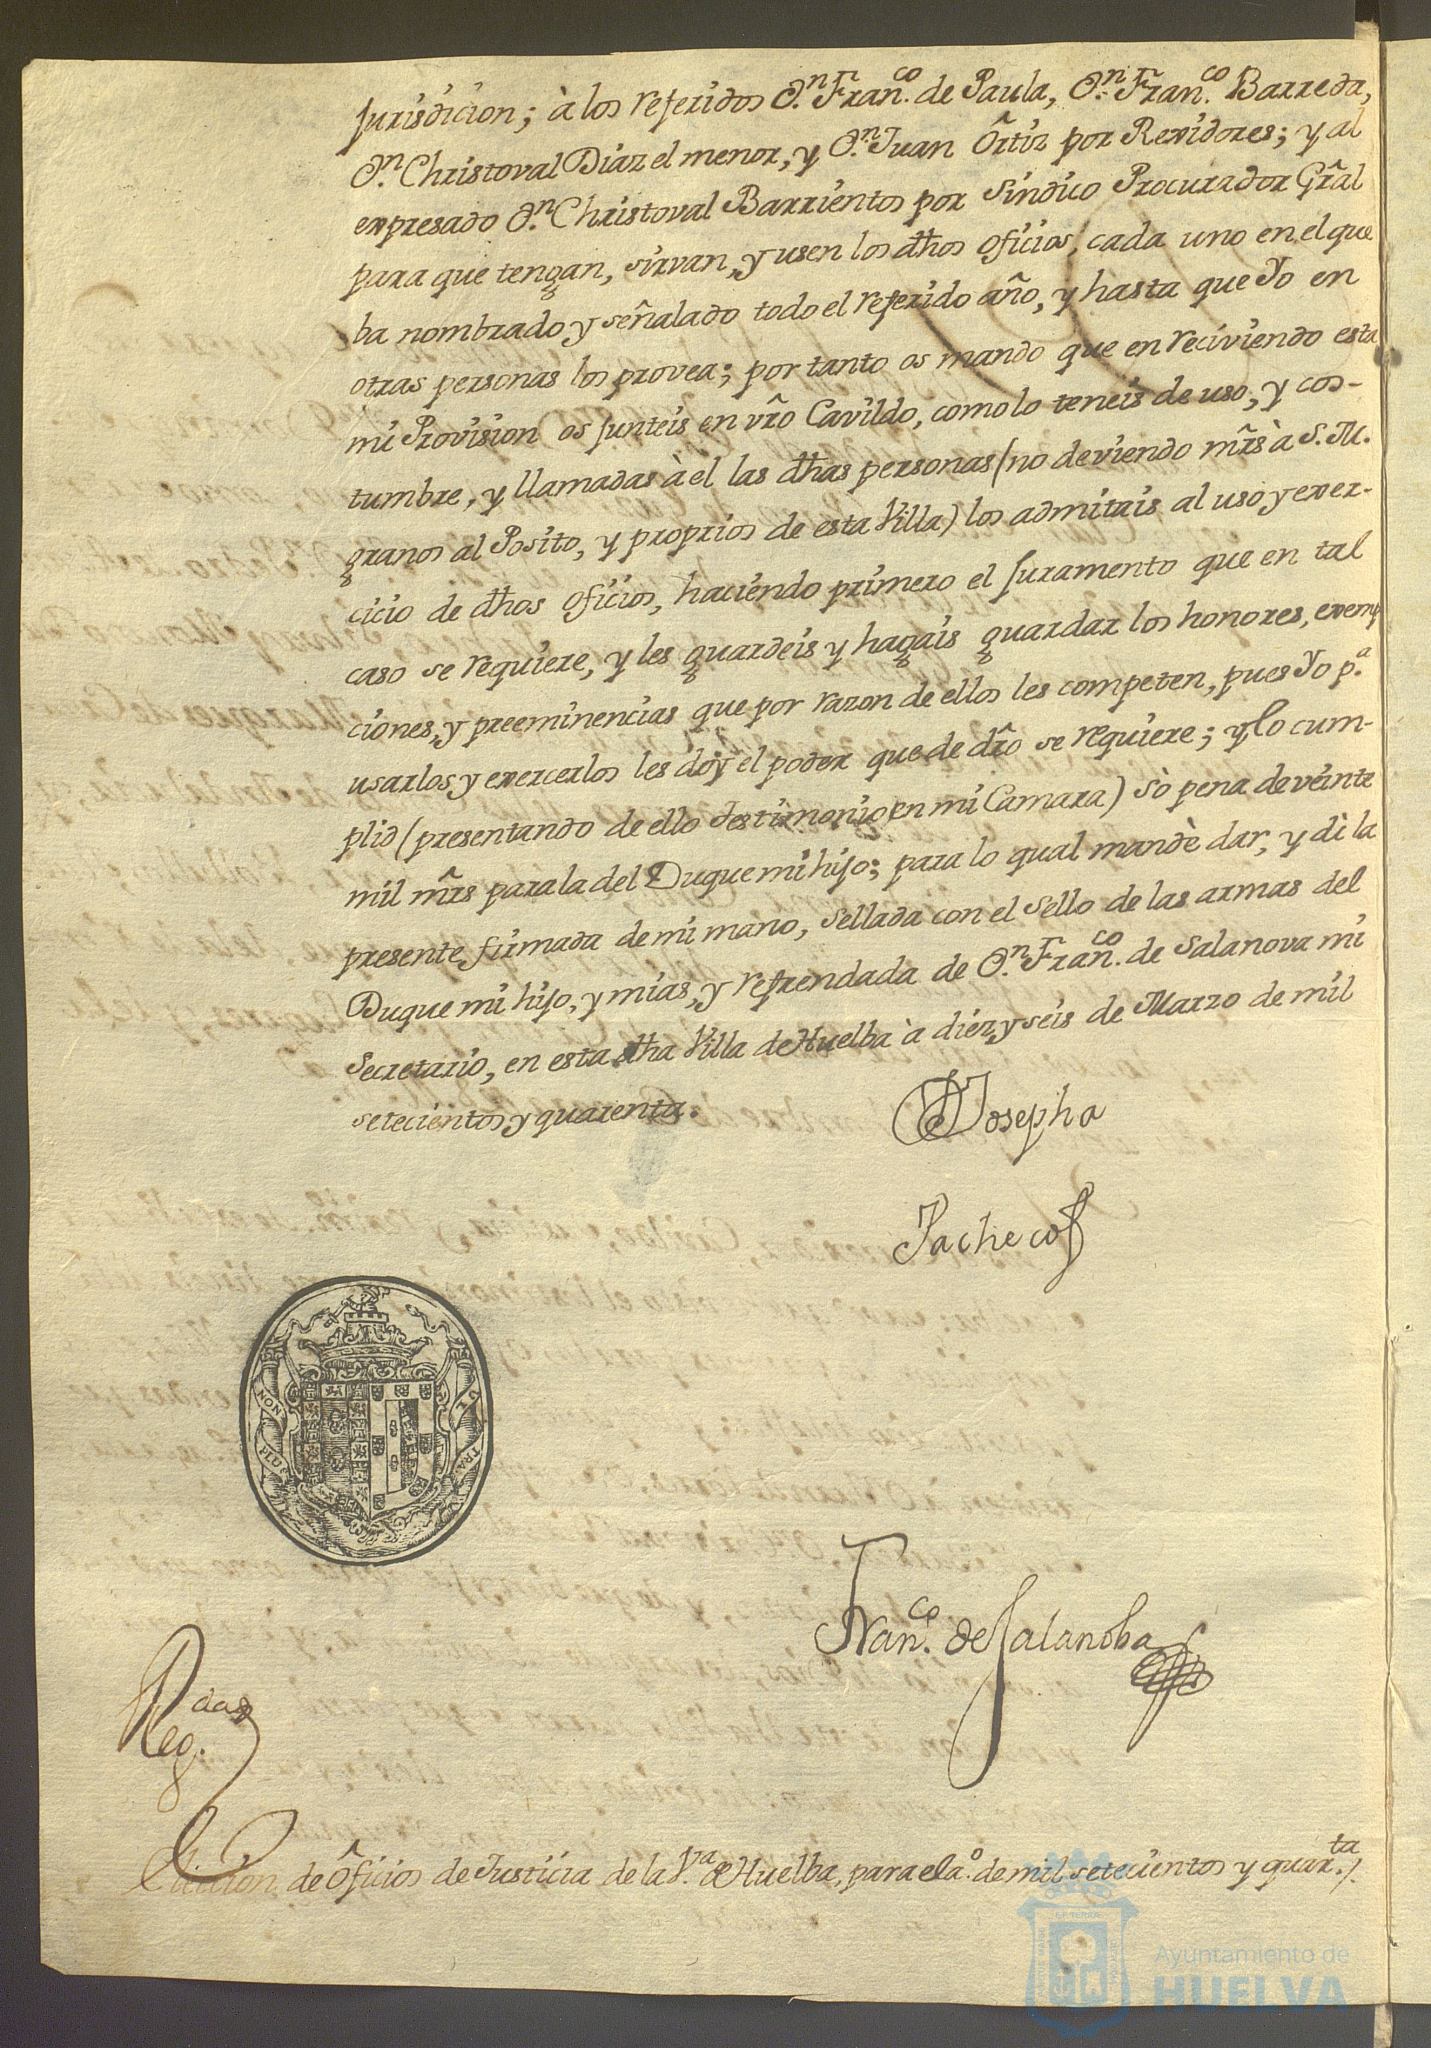 Jurisdicion; à los referidos Dn. Franco. de Paula, Dn. Franco. Barreda,
Dn. Christoval Diaz el menor, y Dn. Juan Ortiz por Rexidores; y al
expresado Dn. Christoval Barrientos por Sindico Procurador Gral
para que tengan, sirvan, y usen los dhos oficios, cada uno en el que
ba nombrado y señalado todo el referido año, y hasta que Yo en
otras personas los provea; por tanto os mando que en reciviendo esta
mi Provision os junteis en vro Cavildo, como lo teneis de uso, y cos-
tumbre, y llamadas à el las dhas personas (no deviendo mrs à S. M.
granos al Posito, y proprios de esta Villa) los admitais al uso y exer-
cicio de dhos oficios, haciendo primero el juramento que en tal
caso se requiere, y les guardeis y hagais guardar los honores, exemp
ciones, y preeminencias que por razon de ellos les competen, pues Yo pa.
usarlos y exercerlos les doy el poder que de dro se requiere; y lo cum-
plid (presentando de ello testimonio en mi Camara) sò pena de veinte
mil mrs para la del Duque mi hijo; para lo qual mandè dar, y dì la
presente, firmada de mi mano, sellada con el sello de las armas del
Duque mi hijo, y mias, y refrendada de Dn. Franco. de Salanova mi
Secretario, en esta dha Villa de Huelba à diez, y seis de Marzo de mil
setecientos y quarenta.
Josepha
Pacheco
NON PLUS ULTRA
Franco. de Salanoba
Regdas
Elicion de Oficios de Justicia de la Va. de Huelba, para el ao. de mil setecientos y quarta.
Ayuntamiento de
HUELVA